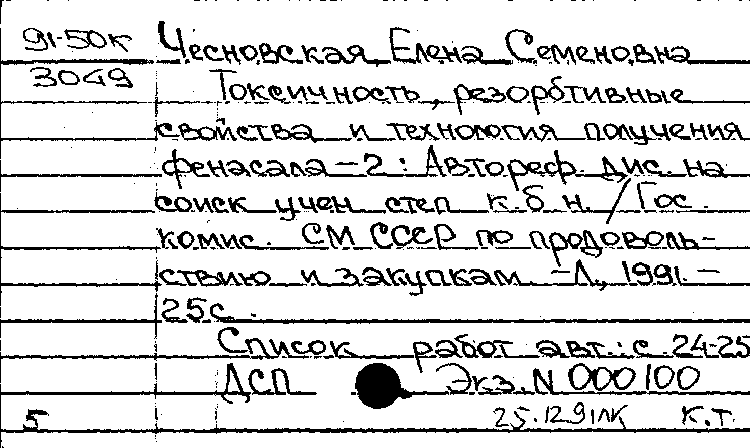 91-50к Чесновская, Елена Семеновна
3049 Токсичность, резорбтивные
свойства и технология получения
фенасала-2: Автореф. дис. на
соиск учен степ к.б н. / Гос.
комис. СМ СССР по продоволь-
ствию и закупкам. -Л., 1991. -
25с.
Список работ авт.: с. 24-25
ДСП Экз. N 000100
5 25.12.91ЛК К.Т.